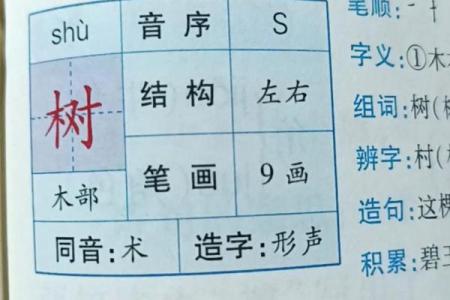 shù 音序 S
树 结构 左右
木部 笔画 9画
同音:术 造字:形声
笔顺:
字义:①木
组词:树(
辨字:村(
造句:这棵
积累:碧